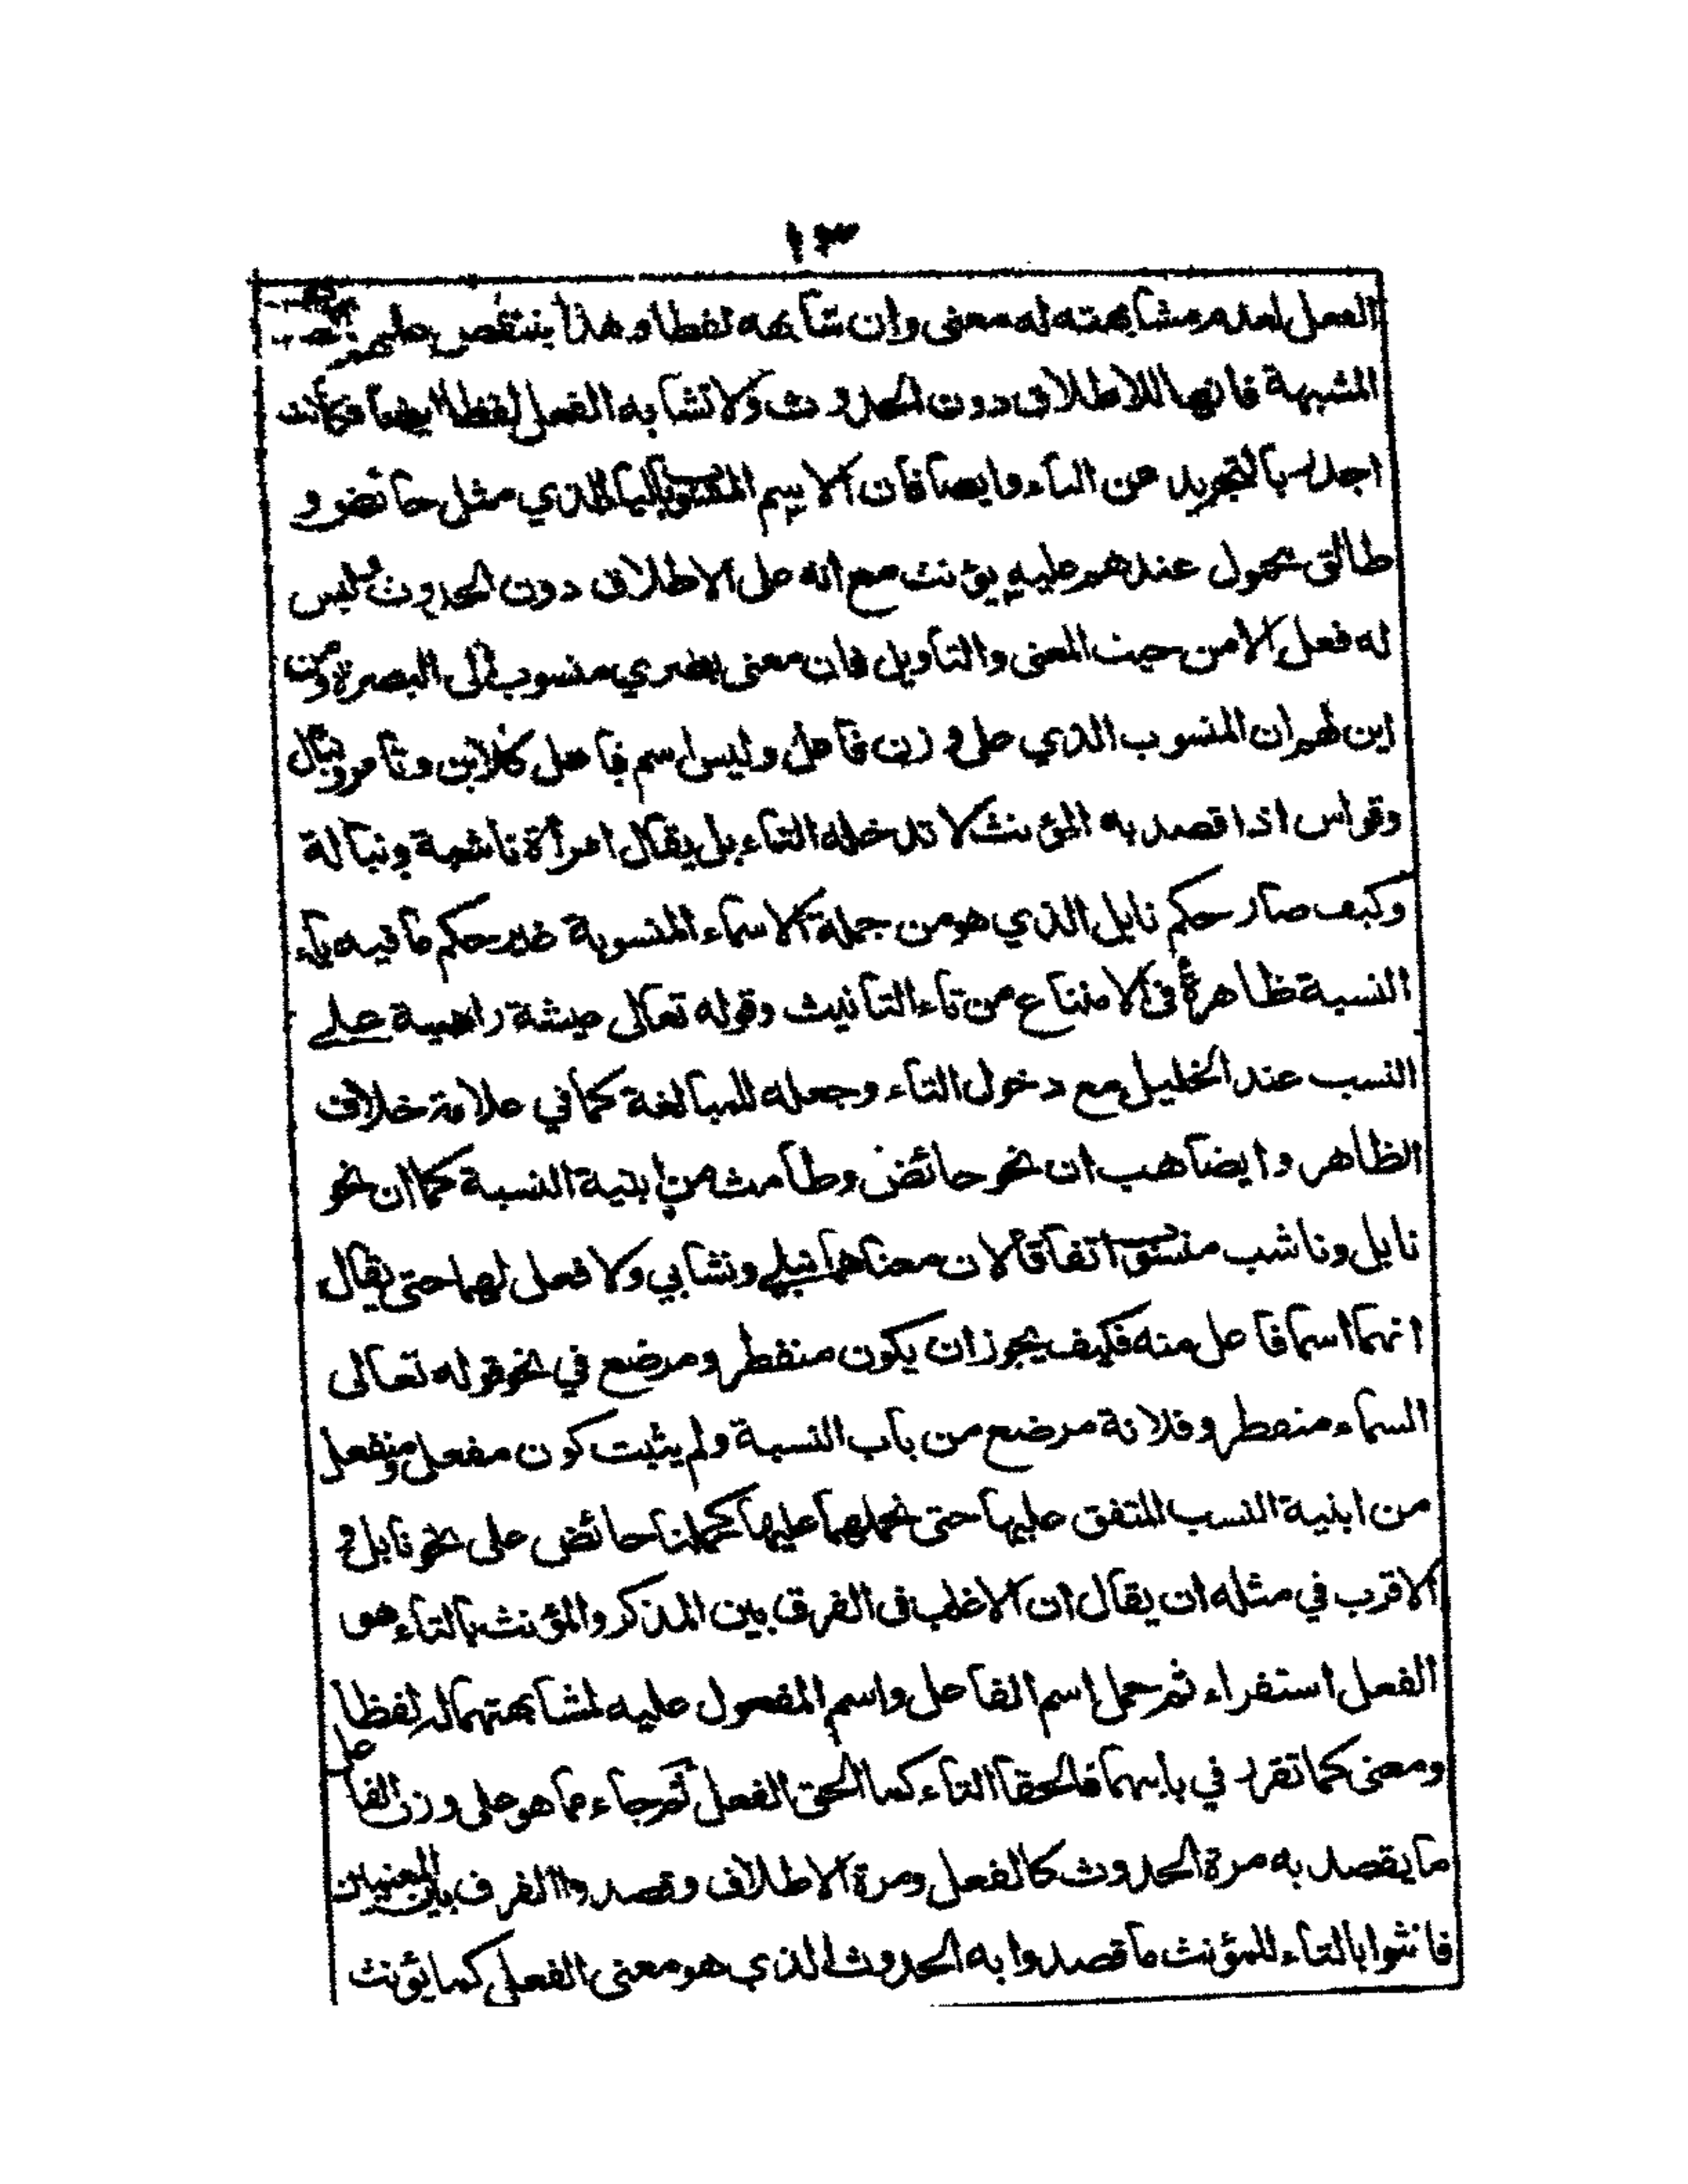 ١٣
الفعل لعدم مشابهته له معنى وان شابهه لفظا وهذا ينتقض عليهم
المشبهة فانها للاطلاق دون الحدوث ولا تشابه الفعل لفظا ايضا فكانت
اجدر بالتجريد عن التاء وايضا فان الاسم المنسوب بالياء الذي مثل حائض و
طالق محمول عندهم عليه يؤنث مع انه على الاطلاق دون الحدوث وليس
له فعل الا من حيث المعنى والتاويل فان معنى بصري منسوب الى البصرة ومن
اين لهم ان المنسوب الذي على وزن فاعل وليس اسم فاعل كلابن وتامر ونبال
وقواس اذا قصد به المؤنث لا تدخله التاء بل يقال امرأة ناشبة ونبالة
وكيف صار حكم نابل الذي هو من جملة الاسماء المنسوبة غير حكم ما فيه ياء
النسبة ظاهرة في الامتناع من تاء التانيث وقوله تعالى عيشة راضية على
النسب عند الخليل مع دخول التاء وجعله للمبالغة كما في علامة خلاف
الظاهر وايضا هب ان نحو حائض وطامث من ابنية النسبة كما ان نحو
نابل وناشب اتفاقا لان معناهما نبلي ونشابي ولا فعل لهما حتى يقال
انهما اسما فاعل منه فكيف يجوز ان يكون منفطر ومرضع في نحو قوله تعالى
السماء منفطر وفلانة مرضع من باب النسبة ولم يثبت كون مفعل ومنفعل
من ابنية النسب المتفق عليها حتى نحملهما عليها كحملنا حائض على نحو نابل و
الاقرب في مثله ان يقال ان الاغلب في الفرق بين المذكر والمؤنث بالتاء هو
الفعل استقراء ثم حمل اسم الفاعل واسم المفعول عليه لمشابهتهما له لفظا
ومعنى كما تقرر في بابهما فالحقا التاء كما الحق الفعل ثم جاء مما هو على وزن الفاعل
ما يقصد به مرة الحدوث كالفعل ومرة الاطلاق وقصدوا الفرق بين المعنيين
فانثوا بالتاء للمؤنث ما قصدوا به الحدوث الذي هو معنى الفعل كما يؤنث